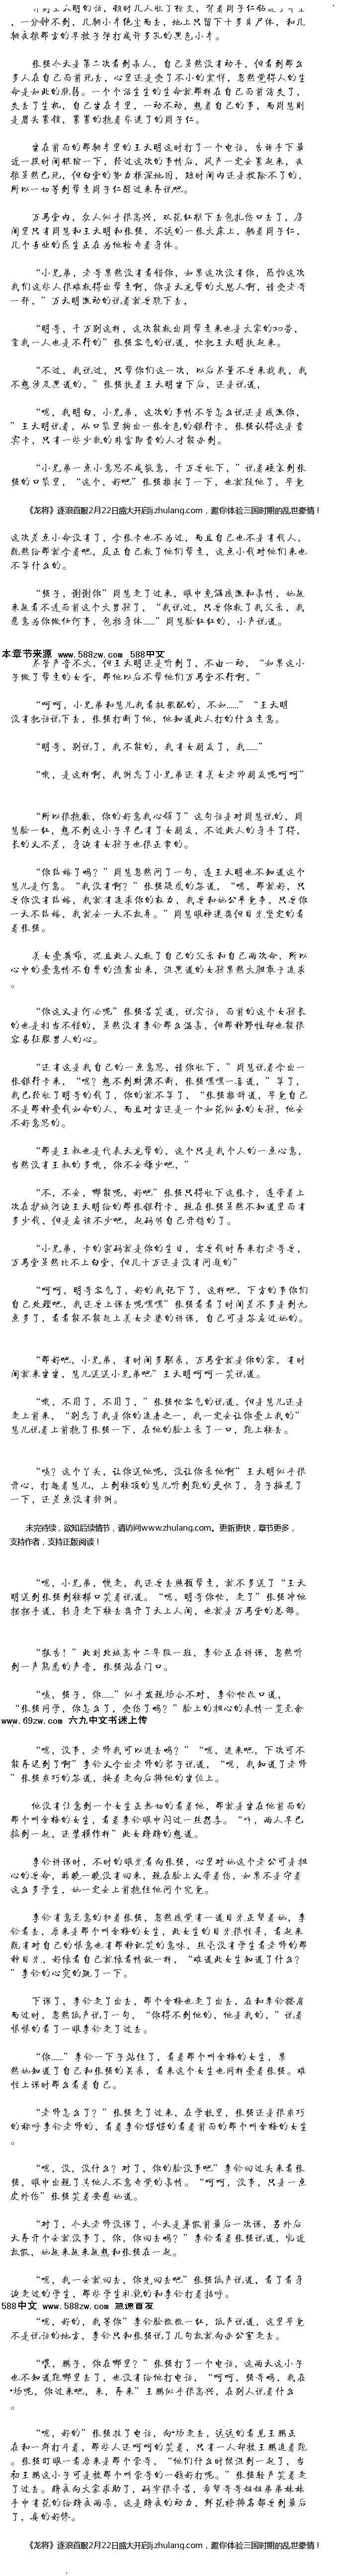 一分钟不到，几辆小车绝尘而去，地上只留下十多具尸体，和几
张强今天是第二次看到杀人，自己虽然没有动手，但看到那么
多人在自己面前死去，心里还是受了不小的震惊，忽然觉得人的生
命是如此的脆弱。一个个活生生的生命就那样在自己面前消失了，
失去了生机，自己坐在车里，一动不动，想着自己的事，而周慧则
是眉头紧锁，紧紧的抱着昏迷了的周子仁。
坐在前面的那辆车里的王天明这时打了一个电话，告诉手下最
所以一切等到帮主周子仁醒过来再说吧。
“小兄弟，老哥果然没有看错你，如果这次没有你，恐怕这次
我们这些人很难救得出帮主啊，你是天龙帮的大恩人啊，请受老哥
“明哥，千万别这样，这次能救出周帮主来也是大家的功劳，
靠我一人也是不行的”张强客气的说道，忙把王天明扶起来。
“不过，我说过，只帮你们这一次，以后尽量不要来找我，我
不想涉及黑道的，”张强扶着王天明坐下后，还是说道，
“嗯，我明白，小兄弟，这次的事情不管怎么说还是感激你，
”王天明说着，从口袋里掏出一张金色的银行卡，张强认得这是贵
宾卡，只有一些少数的非富即贵的人才能办到。
“小兄弟一点小意思不成敬意，千万要收下，”说着硬塞到张
强的口袋里，“这个，好吧”张强推托了一下，也就随他了，毕竟
《龙将》逐浪首服2月22日盛大开启lj.zhulang.com，邀你体验三国时期的乱世豪情！
这次差点小命没有了，拿张卡也不为过，而且自己也不是有钱人，
既然给那就拿着吧，反正自己救了他们帮主，这点小钱对他们来也
不算什么的。
“强子，谢谢你”周慧走了过来，眼中充满感激和柔情，她越
来越看不透面前这个大男孩了，“我说过，只要你救了我父亲，我
愿意为你做任何事，包括身体……”周慧脸红红的，小声说道。
本章节来源 www.588zw.com 588中文
尽管声音不大，但王天明还是听到了，不由一动，“如果这小
子做了帮主的女婿，那他以后不帮他们万马堂不行啊，”
“呵呵，小兄弟和慧儿我看挺般配的，不如……”“王天明
没有把话说下去，张强打断了他，他知道此人打的什么主意。
“明哥，别说了，我不能的，我有女朋友了，我……”
“哦，是这样啊，我倒忘了小兄弟还有美女老师朋友呢呵呵”
“所以很抱歉，你的好意我心领了”这句话是对周慧说的，周
慧脸一红，想不到这小子早已有了女朋友，不过此人的身手了得，
长的又不差，身边有女孩子也很正常的。
“你结婚了吗？”周慧忽然问了一句，连王天明也不知道这个
慧儿是何意。“我没有啊？”张强疑惑的答道，“嗯，那就好，只
要你没有结婚，我就有追求你的权力，我要和她公平竞争，只要你
一天不结婚，我就会一天不放弃。”周慧眼神迷离但目光坚定的看
着张强。
美女爱英雄，况且此人又救了自己的父亲和自己两次命，所以
心中的爱意情不自禁的流露出来，混黑道的女孩果然大胆敢于追求
。
“你这又是何必呢”张强苦笑道，说实话，面前的这个女孩长
的也是相当不错的，虽然没有李铃那么温柔，但那种野性却也能很
容易征服男人的心。
“还有这是我自己的一点意思，请你收下，”周慧说着拿出一
张银行卡来，“嗯？想不到财源不断，张强嘿嘿一喜道，”等了，
我已经收了明哥的钱了，你的就不算了，”张强推辞道，毕竟自己
不是那种爱钱如命的人，而且对方还是一个如花似玉的女孩，他会
不好意思的。
“那是王叔也是代表天龙帮的，这个只是我个人的一点心意，
当然没有王叔的多哦，你不会嫌少吧，”
“不，不会，哪能呢，好吧”张强只得收下这张卡，连带着上
次在护城河边王天明给的那张银行卡，现在张强虽然不知道里面有
多少钱，但是应该不少吧，起码够自己开销的了。
“小兄弟，卡的密码就是你的生日，需要钱时再来打老哥要，
万马堂虽然比不上白堂，但几十万还是没有问题的”
“呵呵，明哥客气了，好的我记下了，这样吧，下面的事你们
自己处理吧，我还要上课去呢嘿嘿”张强看看了时间差不多是到九
点多了，看看能不能赶上美女老婆的讲课，自己可是答应过她的。
“那好吧，小兄弟，有时间多联系，万马堂就是你的家，有时
间就来坐坐，慧儿送送小兄弟吧”王天明呵呵一笑说道。
“哦，不用了，不用了，”张强忙客气的说道，但是慧儿还是
走上前来，“别忘了我是你的追求之一，我一定会让你爱上我的”
慧儿说着上前抱了张强一下，在他的脸上亲了一口，跑上楼去。
“咳？这个丫头，让你送他呢，没让你亲他啊”王天明似乎很
开心，打趣着慧儿，上到楼顶的慧儿听到跑的更快了，身子摇晃了
一下，还差点没有摔倒。
未完待续，欲知后续情节，请访问www.zhulang.com。更新更快，章节更多，
支持作者，支持正版阅读！
“嗯，小兄弟，慢走，我还要去照顾帮主，就不多送了“王天
明送到张强到楼梯口笑着说道。“嗯，明哥你忙，走了”张强冲他
摆摆手道，转身走下楼去离开了天上人间，也就是万马堂的总部。
“报告！”此刻北城高中二年级一班，李铃正在讲课，忽然听
到一声熟悉的声音，张强站在门口。
“咦，强子，你……”似乎发现场合不对，李铃忙改口道，
“张强同学，你怎么了，受伤了吗？”脸上的担心的表情一览无余
www.69zw.com 六九中文书迷上传
“嗯，没事，老师我可以进去吗？”“嗯，进来吧，下次可不
能再迟到了啊”李铃又拿出老师的架子说道，“嗯，我知道了老师
”张强乖巧的答道，接着走向后排他的坐位上。
他没有注意到一个女生正热切的看着他，那就是坐在他前面的
那个叫舍梅的女生，看着李铃眼中闪过一丝怒意。“哼，两人早已
搞到一起，还装模作样”此女暗暗的想道。
李铃讲课时，不时的眼光看向张强，心里对她这个老公可是担
心的要命，昨晚一晚没有回来，现在脸上又带着伤，如果不是守着
这么多学生，她一定会上前抱住他问个究竟。
李铃有意无意的扫着张强，忽然感觉有一道目光正望着她，李
铃看去，原来是那个叫舍梅的女生，此女生的目光很怪异，看起来
既有对自己的恨意也有那种讥笑的意味，丝毫没有学生看老师的那
种目光，好像看自己就像看情敌一样，“难道此女生知道了什么？
”李铃的心突的跳了一下。
下课了，李铃走了出去，那个舍梅也走了出去，在和李铃擦肩
而过时，忽然低声说了一句，“你得不到他的，他是我的，”说着
恨恨的看了一眼李铃走了过去。
“你……”李铃一下子站住了，看着那个叫舍梅的女生，果
然她知道了自己和张强的关系，看来这个女生也同样爱着张强。难
怪上课时那么看着自己。
“老师怎么了？”张强走了过来，在学校里，张强还是很乖巧
的称呼李铃老师的，看着李铃愣愣的看着前面的那个叫舍梅的女生
。
“嗯，没，没什么？对了，你的脸没事吧”李铃回过头来看张
强，眼中出现了其他人不易察觉的柔情。“呵呵，没事，只是一点
皮外伤”张强笑着安慰她道。
“对了，今天老师没课了，今天是暑假前最后一次课，另外后
天再开个会就没事了，你，你回去吗？”李铃看着张强说道，临近
放假，她越来越来越想和张强在一起。
“嗯，我一会就回去，你先回去吧”张强低声说道，看了看身
边走过的学生，那些学生礼貌的和李铃打着招呼。
588中文 www.588zw.com 急速首发
“嗯，好的，我等你”李铃脸微微一红，低声说道，这里毕竟
不是说话的地方，李铃只和张强说了几句就就向办公室走去。
“喂，鹏子，你在哪里？”张强打了一个电话，这两天这小子
也不知道跑哪里去了，也没有给他打电话，“呵呵，强哥吗，我在
*场呢，你过来吧，来，再来”王鹏似乎很高兴，在别人说着什么
。
“嗯，好的”张强挂了电话，向*场走去，远远的看见王鹏正
在和一群打斗着，那些人还呵呵的笑着，只有一人却被王鹏追着跑